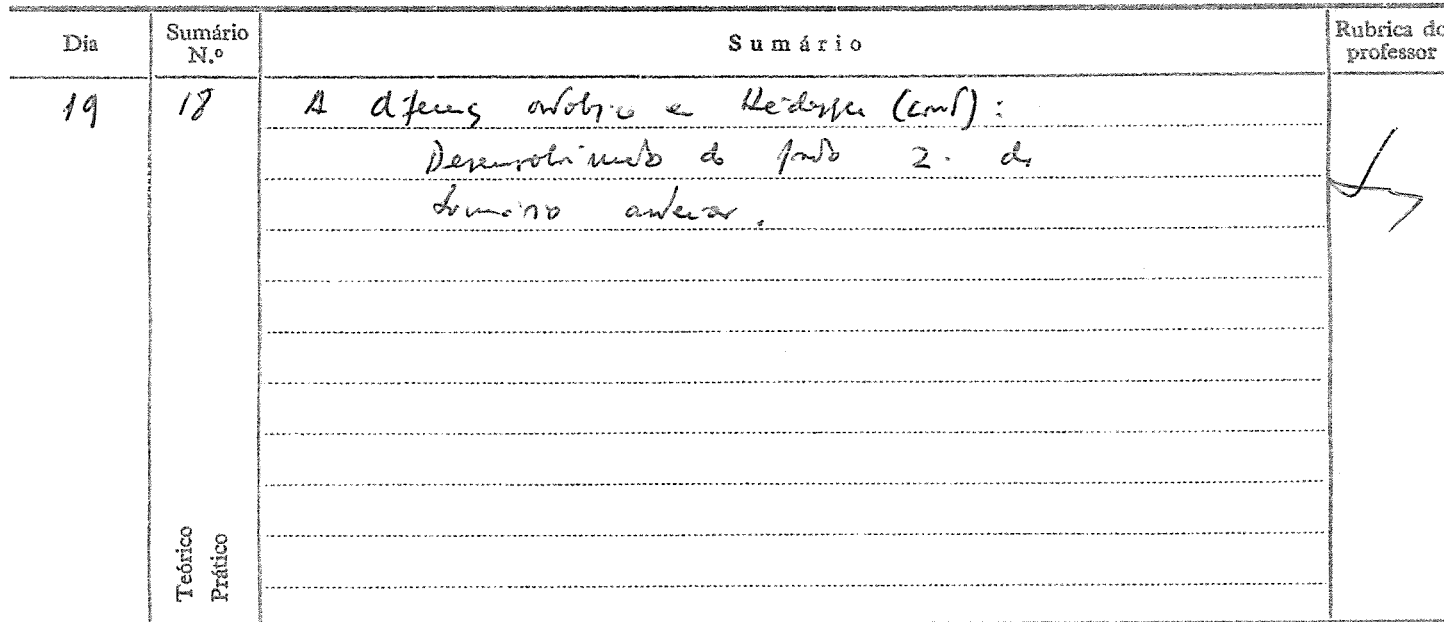 Dia Sumário N.º Sumário Rubrica do professor
19 18 A diferença ontológica em Heidegger (cont):
Desenvolvimento do ponto 2. do
sumário anterior.
Teórico
Prático